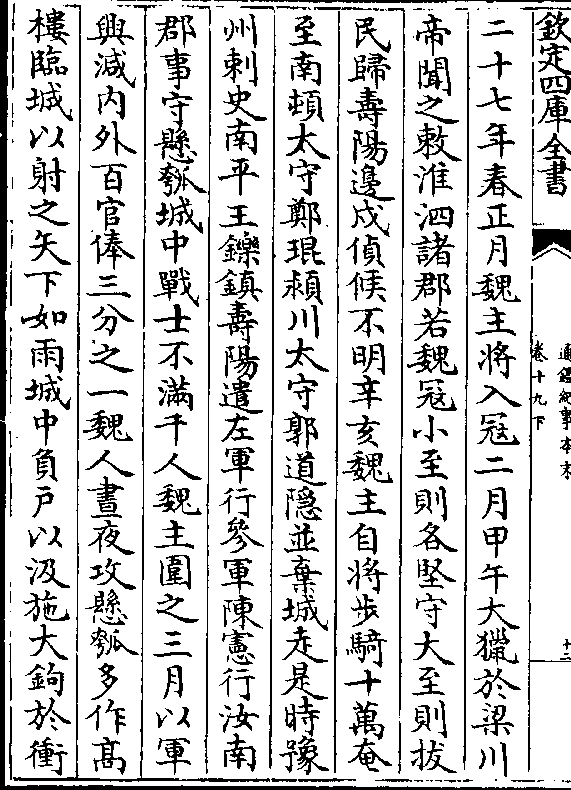 欽定四庫全書
通鑑紀事本末
卷十九下
十二
二十七年春正月魏主將入冦二月甲午大獵於梁川
帝聞之敕淮泗諸郡若魏冦小至則各堅守大至則拔
民歸壽陽邊戍偵候不明辛亥魏主自將步騎十萬奄
至南頓太守鄭琨潁川太守郭道隱並棄城走是時豫
州刺史南平王鑠鎮壽陽遣左軍行參軍陳憲行汝南
郡事守懸瓠城中戰士不滿千人魏主圍之三月以軍
興減内外百官俸三分之一魏人晝夜攻懸瓠多作髙
樓臨城以射之矢下如雨城中負户以汲施大鉤於衝